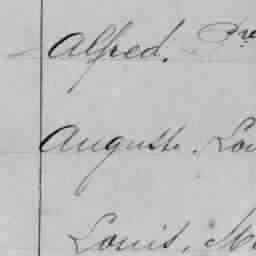 Alfred.
Auguste. Lou
Louis, M